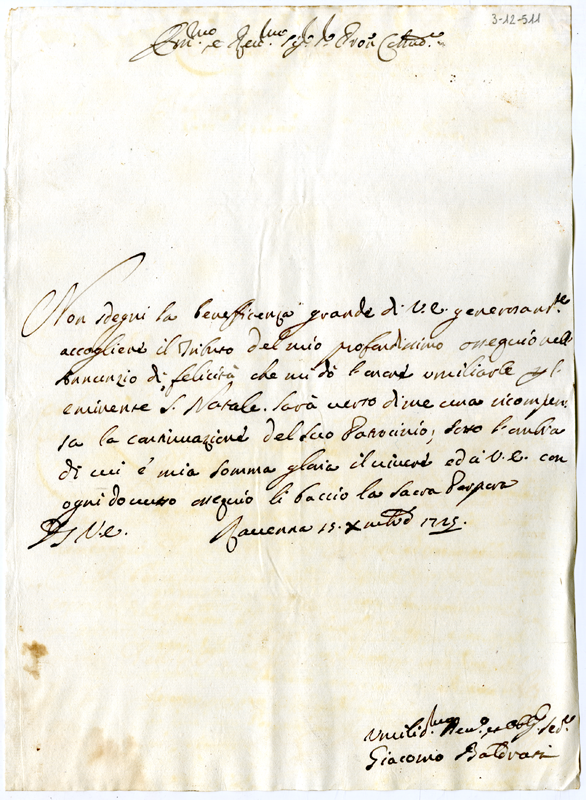 3-12-511
Em.mo e Rev.mo Sig.r Sig.r Pron Colmo.
Non sdegni la benefficenza grande di V.E. generosam.te
accogliere il Tributo del mio profondissimo ossequio nell
annunzio di felicità, che mi dò l'onore umiliarle
eminente S. Natale. Sarà verso di me una ricompen
sa la continuazione del suo Patrocinio; sotto l'ombra
di cui è mia somma gloria il vivere ed a V.E. con
ogni dovuto ossequio li baccio la Sacra Porpora
Di V.E. Ravenna 15. Xmbre 1725.
Umilis.mo Dev.o et Obb. Se.re
Giacomo Baldrati